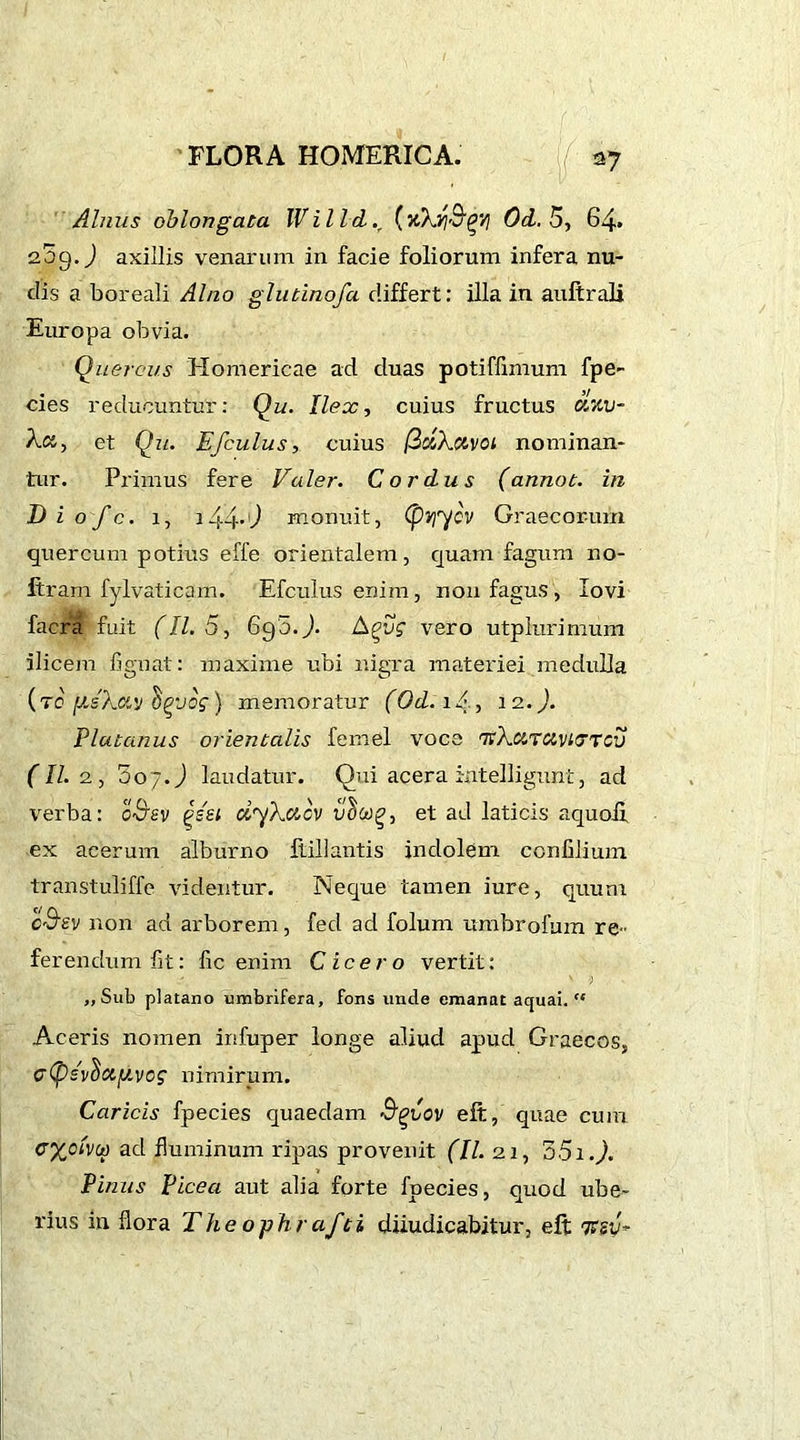 FLORA HOMERICA. 27
Alnus oblongata Willd. (κλήθρη Od. 5, 64.
239.) axillis venarum in facie foliorum infera nu-
dis a boreali Alno glutinoſa differt: illa in auſtrali
Europa obvia.
Quercus Homericae ad duas potiſſimum ſpe-
cies reducuntur: Qu. Ilex, cuius fructus ἄκυ-
λα, et Qu. Eſculus, cuius βάλανοι nominan-
tur. Primus fere Valer. Cordus (annot. in
Dioſc. 1, 144.) monuit, φηγὸν Graecorum
quercum potius eſſe orientalem, quam fagum no-
ſtram ſylvaticam. Eſculus enim, non fagus, Iovi
ſacra fuit (Il. 5, 693.). Δρῦς vero utplurimum
ilicem ſignat: maxime ubi nigra materiei medulla
(τὸ μέλαν δρυὸς) memoratur (Od. 14, 12.).
Platanus orientalis ſemel voce πλατανιστοῦ
(Il. 2, 307.) laudatur. Qui acera intelligunt, ad
verba: ὅθεν ῥέει ἀγλαὸν ὕδωρ, et ad laticis aquoſi
ex acerum alburno ſtillantis indolem conſilium
transtuliſſe videntur. Neque tamen iure, quum
ὅθεν non ad arborem, ſed ad ſolum umbroſum re-
ferendum ſit: ſic enim Cicero vertit:
„Sub platano umbrifera, fons unde emanat aquai.“
Aceris nomen inſuper longe aliud apud Graecos,
σφένδαμνος nimirum.
Caricis ſpecies quaedam θρύον eſt, quae cum
σχοίνῳ ad fluminum ripas provenit (Il. 21, 351.).
Pinus Picea aut alia forte ſpecies, quod ube-
rius in flora Theophraſti diiudicabitur, eſt πεύ-